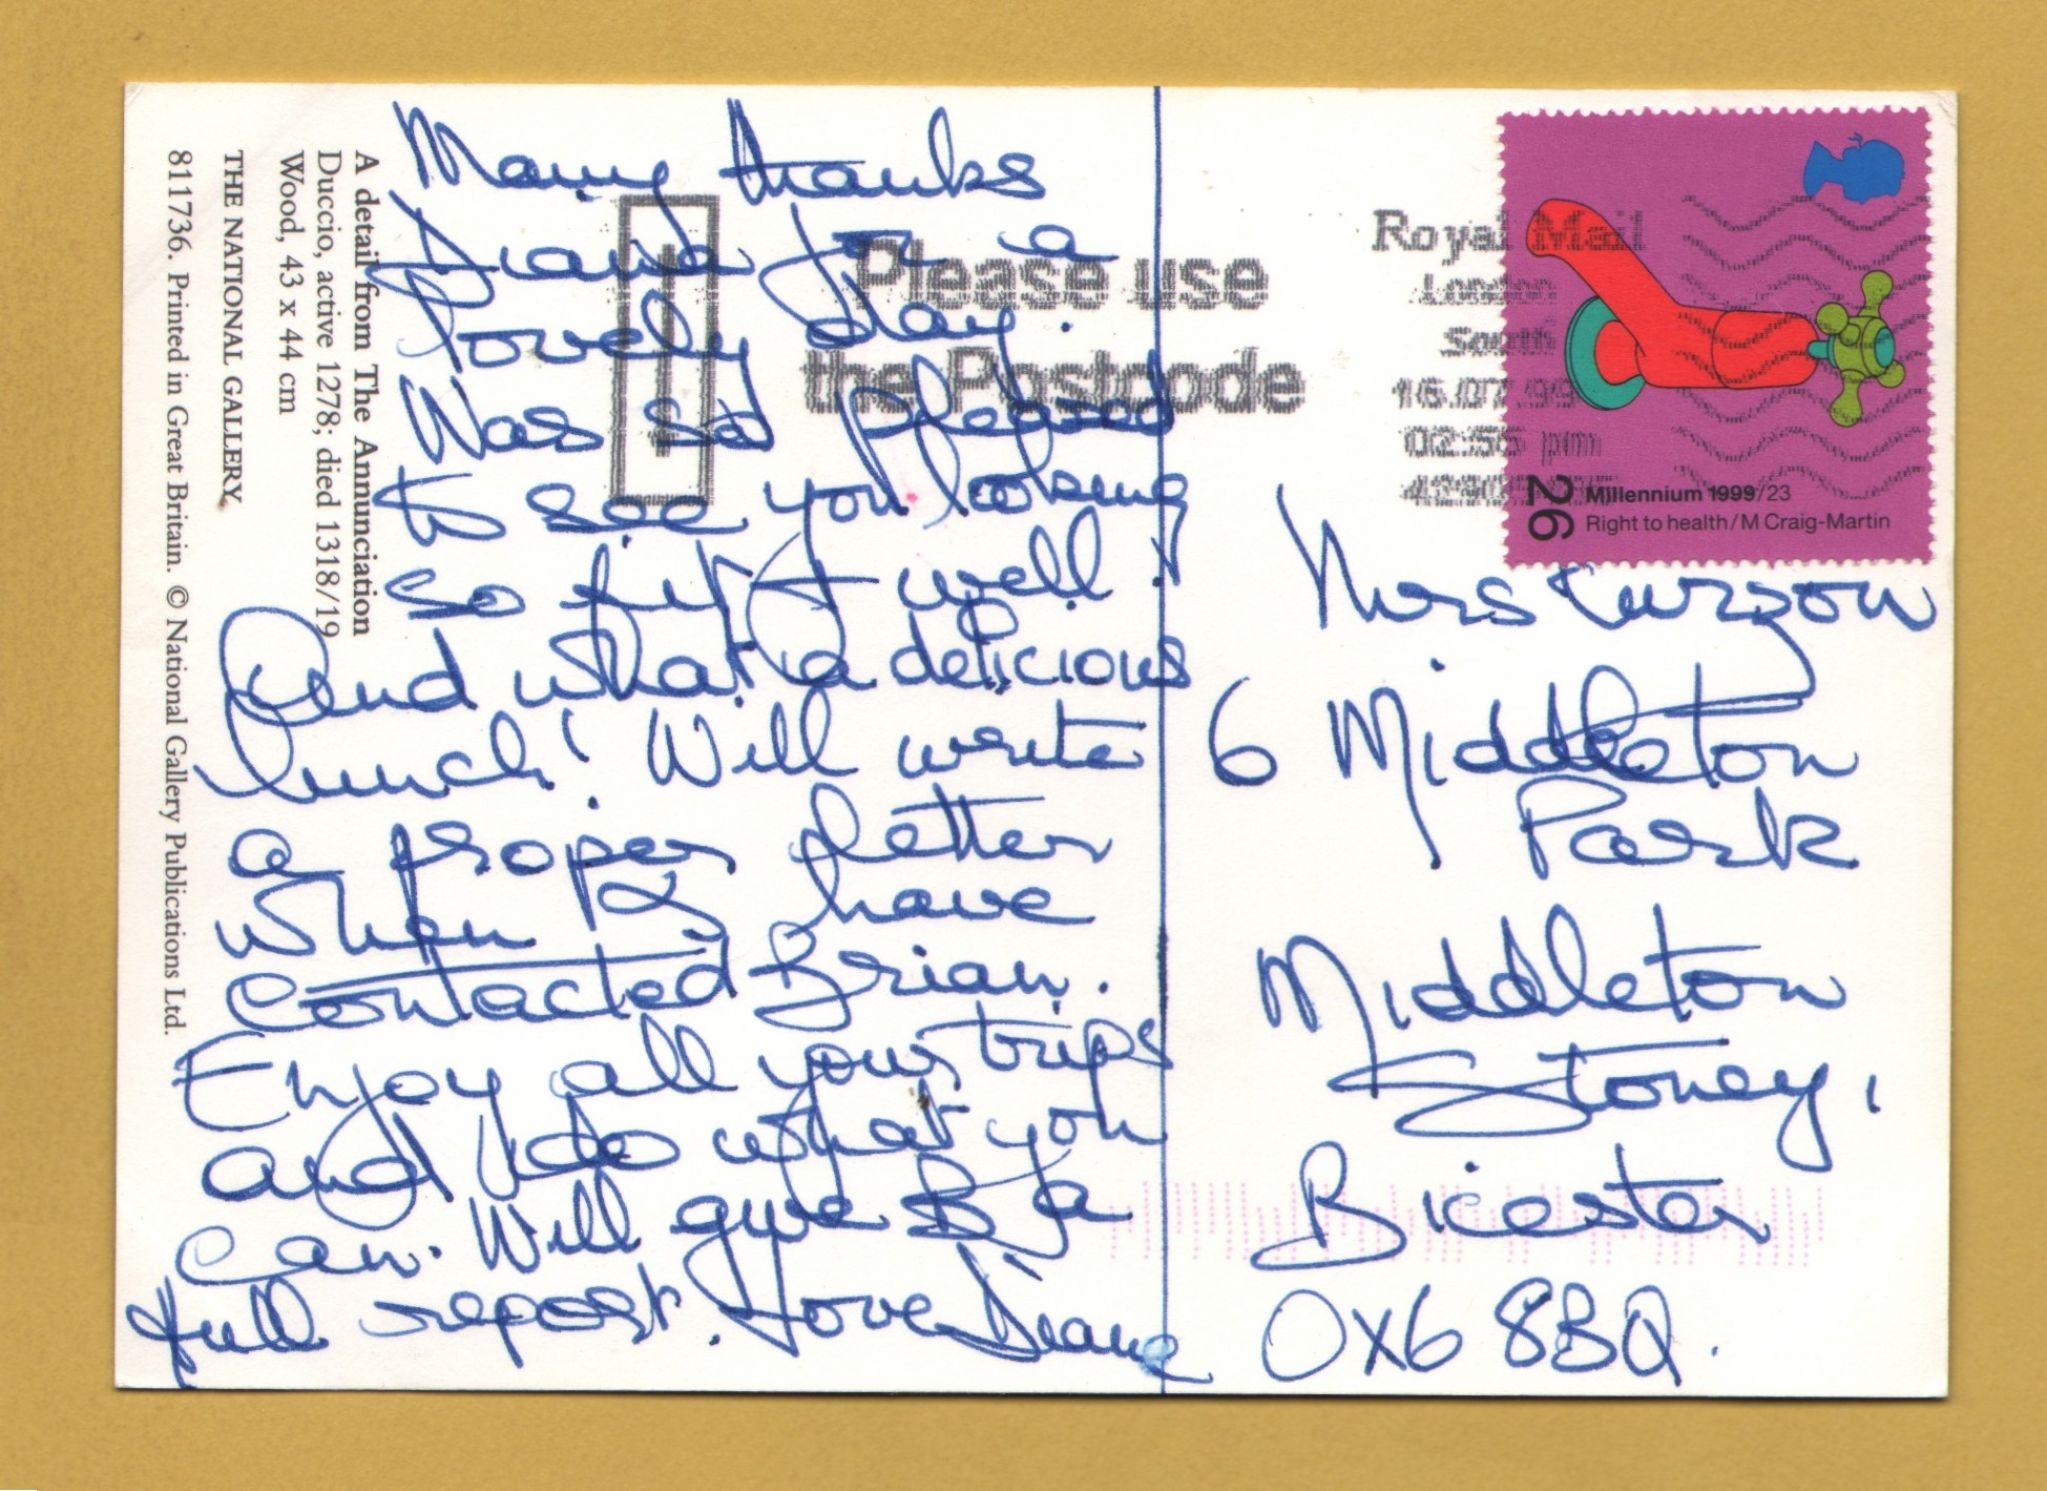 Many thanks
Diana for a
lovely day.
Was so pleased
to see you looking
so fit & well!
And what a delicious
lunch! Will write
a proper letter
when I have
contacted Brian.
Enjoy all your trips
and do what you
can. Will give B a
full report. Love Diane
Mrs Curzon
6 Middleton
Park
Middleton
Stoney,
Bicester
OX6 8BQ.
A detail from The Annunciation
Duccio, active 1278; died 1318/19
Wood, 43 x 44 cm
THE NATIONAL GALLERY
811736. Printed in Great Britain. © National Gallery Publications Ltd.
Please use
the Postcode
Royal Mail
London
South
16.07.99
02:56 pm
26
Millennium 1999/23
Right to health/M Craig-Martin